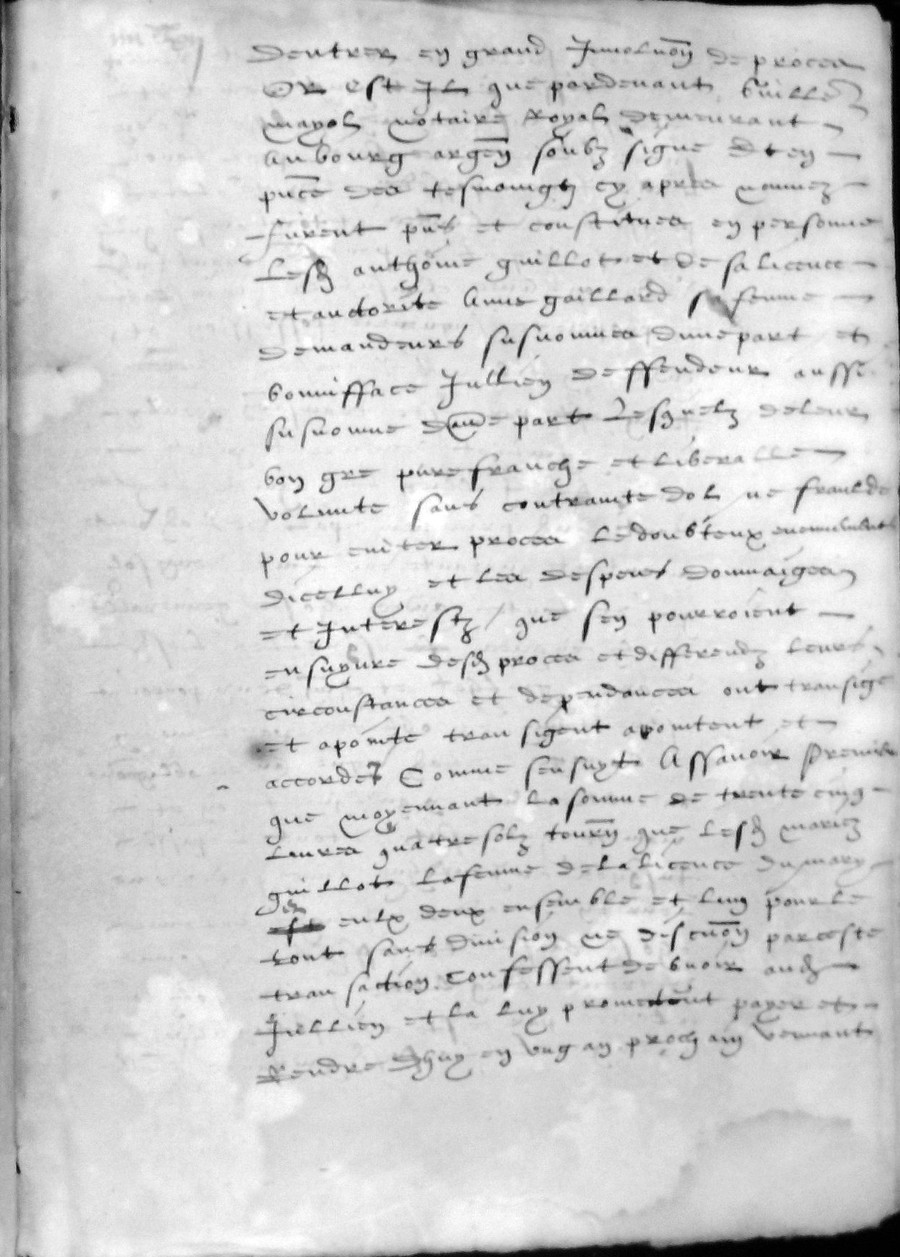 dentrer en grand Jnvolution de proces
Or est Jl que pardevant Guille
mayol notaire Royal demeurant
au bourg argen soubz signe et en
pnce des tesmoingtz cy apres nommez
furent pns et constitues en personne
lesd anthoine guillot et de sa licence
et auctorite Anne gaillard sa femme
demandeurs susnommes dune part et
bonifface Jullien deffendeur aussi
susnomme daue part Lesquelz de leur
bon gre pure franche et liberalle
volunte sans contrainte dol ne fraulde
pour eviter proces le doubteux evenement
dicelluy et les despens dommaiges
et Jnterestz que sen pourroient
ensuyvre desd proces et differendz leurs
circonstances et dependances ont transige
et apointe transigent apointent et
accordet Comme sensuyt Assavoir Premier
que moyennant la somme de trente cinq
livres quatre solz tourn que lesd mariez
guillot la femme de la licence du mary
eulx deux ensemble et lung pour le
tout sans division ne discution par ceste
transaction Confessent debvoir aud
Jullien et la luy promettent payer et
Rendre dhuy en ung an prochain venant